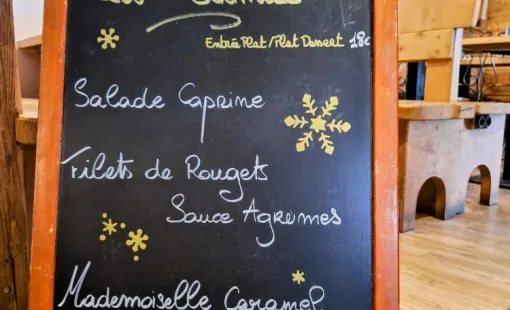 Entrée Plat/Plat Dessert 18€
Salade Caprine
Filets de Rougets
Sauce Agrumes
Mademoiselle Caramel